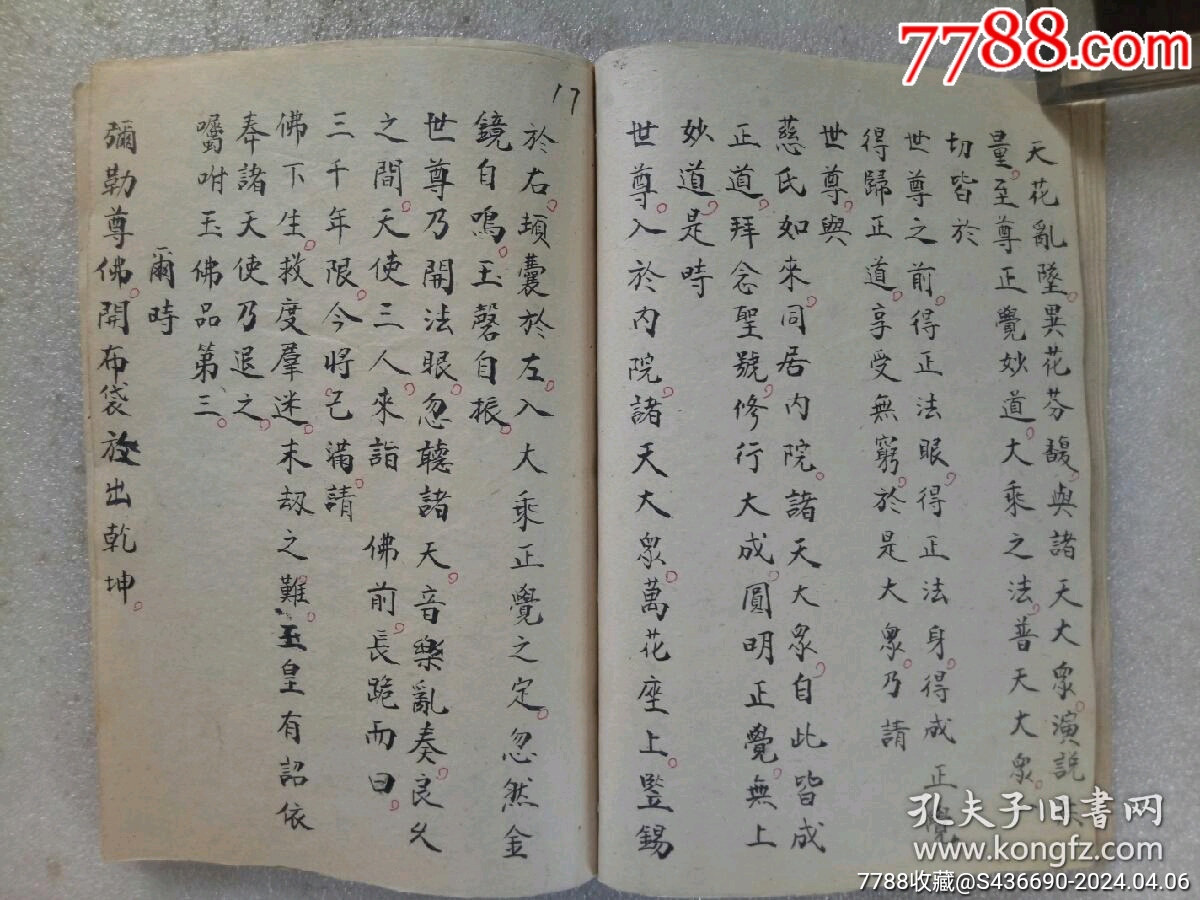 天花亂墜。異花芬馥。與諸天大衆。演説
量至尊正覺妙道。大乘之法。普天大衆。
切皆於
世尊之前。得正法眼。得正法身。得成 正
得歸正道。享受無窮。於是大衆。乃請
世尊。與
慈氏如來。同居内院。諸天大衆。自此皆成
正道。拜念聖號。修行大成。圓明正覺。無上
妙道。是時
世尊。入於内院。諸天大衆。萬花座上。竪錫
17
於右。頓囊於左。入大乘正覺之定。忽然金
鏡自鳴。玉磬自振。
世尊乃開法眼。忽聽諸天。音樂亂奏。良久
之間。天使三人。來詣 佛前。長跪而曰。
三千年限。今將已滿。請
佛下生。救度羣迷。末刼之難。玉皇有詔依
奉諸天使乃退之。
囑咐玉佛品第三。
爾時
彌勒尊佛。開布袋放出乾坤。
7788.com
孔夫子旧书网
www.kongfz.com
7788收藏@S436690-2024.04.06